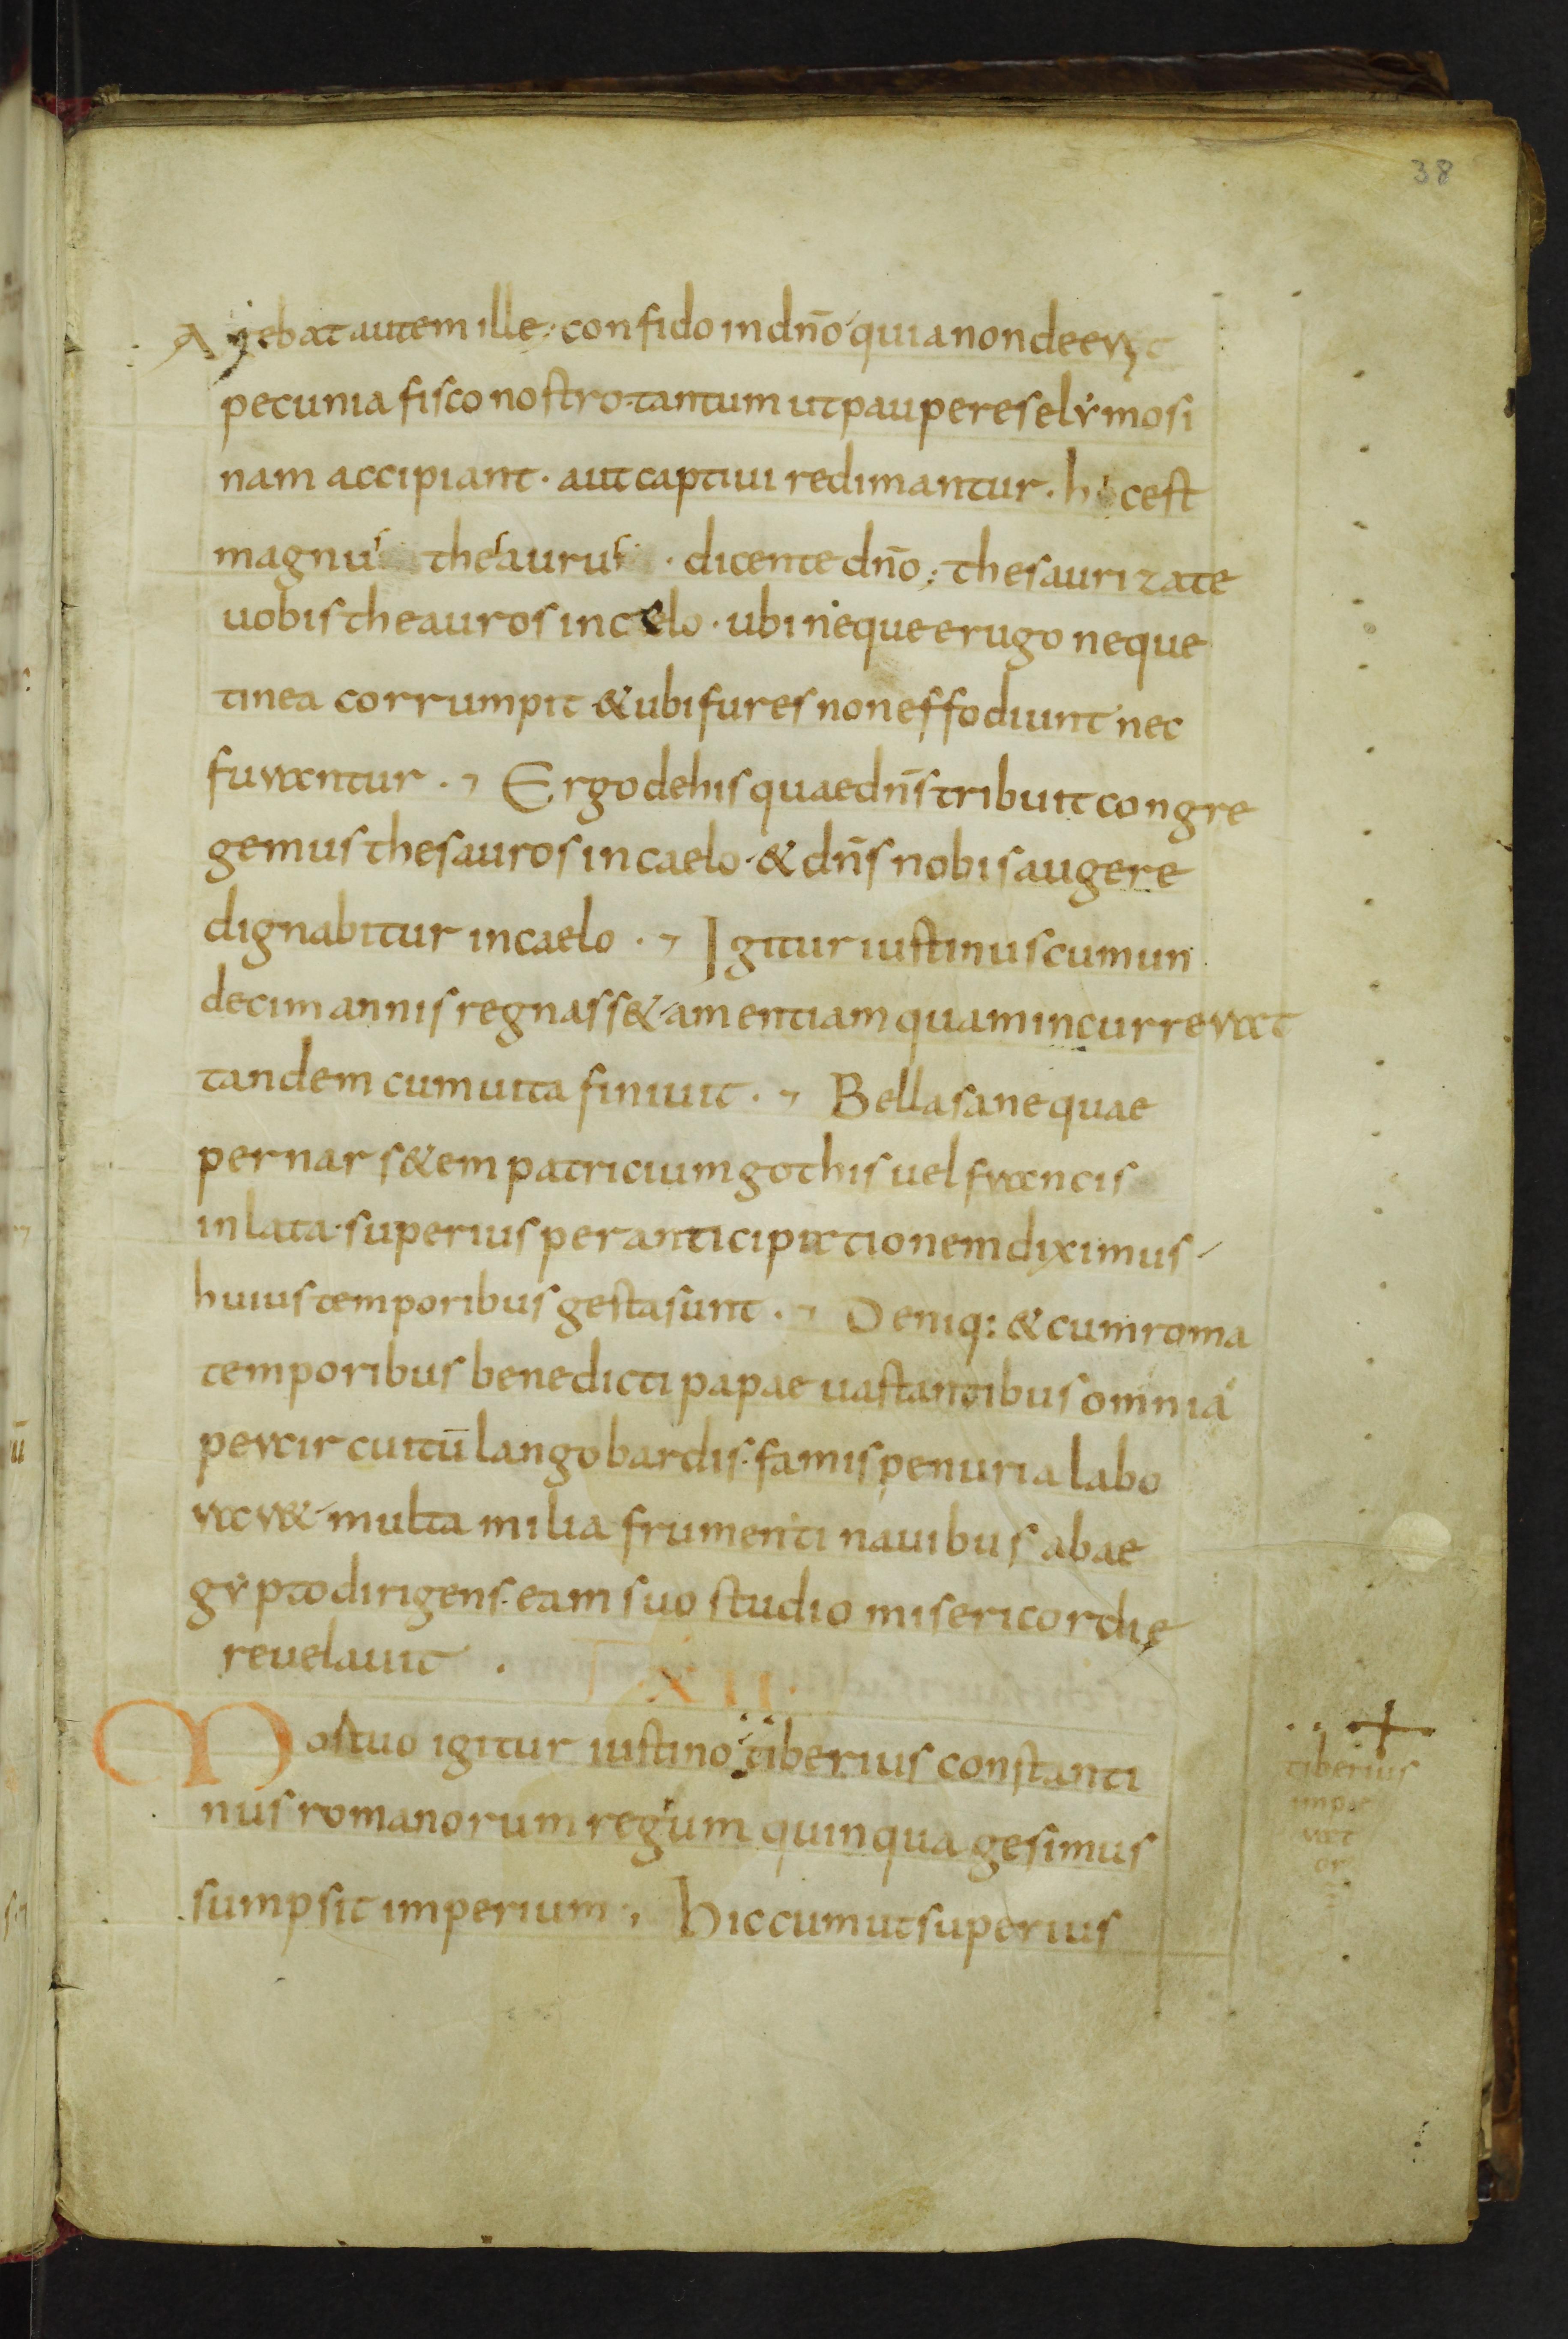 38
Ajebat autem ille. confido in dnō quia non deerit
pecunia fisco nostro. tantum ut pauperes elymosi
nam accipiant. aut captiui redimantur. hoc est
magnus thesaurus. dicente dnō; thesaurizate
uobis theauros in celo. ubi neque erugo neque
tinea corrumpit & ubi fures non effodiunt nec
furantur. Ergo de his quae dns̄ tribuit congre
gemus thesauros in caelo. & dns̄ nobis augere
dignabitur in caelo. Igitur iustinus cum un
decim annis regnass& amentiam quam incurrerat
tandem cum uita finiuit. Bella sane quae
per nars&em patricium gothis uel francis
inlata superius per anticipationem diximus
huius temporibus gesta sunt. Deniq: & cum roma
temporibus benedicti papae uastantibus omnia
per circuitū langobardis. famis penuria labo
rar& multa milia frumenti nauibus ab ae
gypto dirigens. eam suo studio misericordię
reuelauit.
XII
Mostuo igitur iustino tiberius constanti
nus romanorum regum quinquagesimus
sumpsit imperium. Hic cum ut superius
tiberius
imp
rat
or